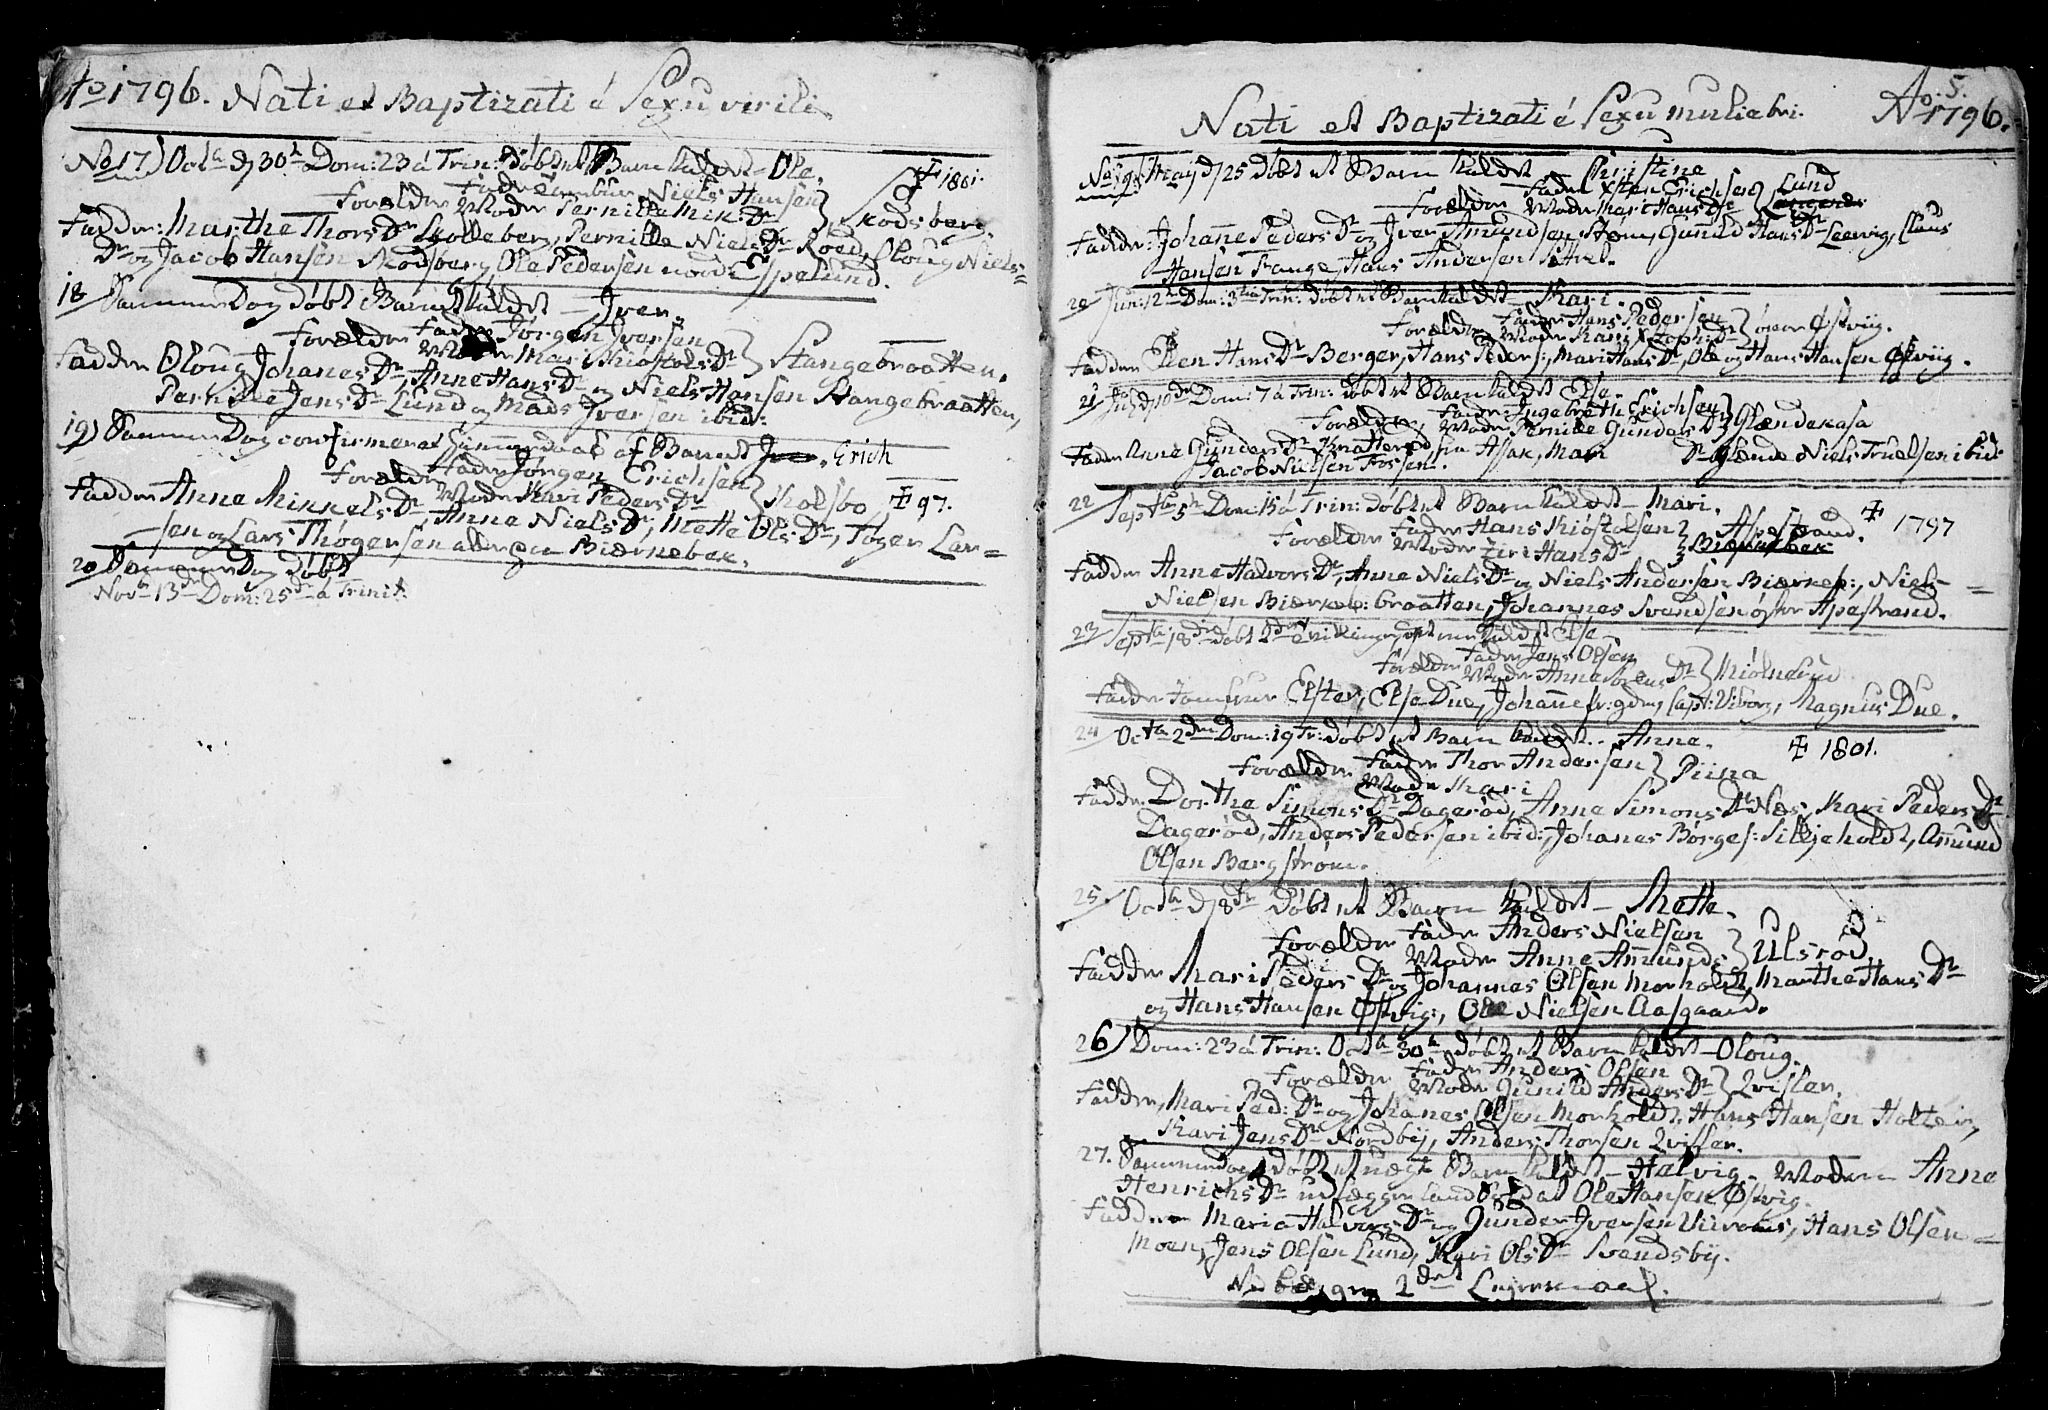 Ao 1796. Nati et Baptizati é Sexu virili
No 17) Octb d 30te Dom: 23 á Trin: döbt et Barn kaldet Ole. ‡ 1801.
Forældre Fader Niels Hansen
Moder Pernille Mik: Dr } Skodsberg.
Fadder: Marthe Thors Dr Skolleberg, Pernille Niels Dr Roed, Oloug Niels=
Dr og Jacob Hansen Skodsberg, Ole Pedersen nordr Espelund.
18 Samme Dag döbt et Barn kaldet Iver.
Forældre Fader Jörgen Iversen
Moder Mari Kiöstols Dr } Stangebraatten.
Fadder Oloug Johanes Dr, Anne Hans Dr og Niels Hansen Stangebraatten,
Pernille Jens Dr Lund og Mads Iversen ibid:
19) Samme Dag confirmeret Hiemmedaab af Barnet Erich
Forældre Fader Jörgen Erichsen
Moder Kari Peders Dr } Kolsbo ‡ 97.
Fadder Anne Mikkels Dr, Anne Niels Dr, Mette Ols Dr, Töger Lar=
sen og Lars Thögersen alle paa Biærnebek.
20 Samme Dag döbt
Novb 13de Dom: 25de á Trinit.
5.
Nati et Baptizati é Sexu muliebri. Ao 1796.
No 19. Maj d 25 döbt et Barn kaldet Christine
Forældre Fader Xsten Erichsen
Moder Mari Hans Dr } Lund
Fadder: Johanne Peders Dr og Iver Amundsen Stem, Gunild Hans Dr Leervig, Claus
Hansen Stange, Hans Andersen
20 Jun: 12te Dom: 3tia Trin: döbt et Barn kaldet Kari.
Forældre Fader Hans Pedersen
Moder Karn Xstoph: Dr } Östviig.
Fadder Ellen Hans Dr Berger, Hans Peders:, Mari Hans Dr, Ole og Hans Hansen Östviig.
21 Juli d 10de Dom: 7 á Trin: döbt et Barn kaldet Else.
Forældre Fader Ingebreth Erichsen
Moder Pernille Gunders Dr } Glændekasa
Fadder Anne Gunders Dr Knatteröd fra Assak, Mari Dr Glænde Niels Truelsen ibid
Jacob Nielsen Trossen.
22 Septb 5te Dom: 15 á Trin: döbt et Barn kaldet Mari. ‡ 1797
Forældre Fader Hans Kiöstolsen
Moder Siri Hans Dr } Apestrand.
Fadder Anne Halvors Dr, Anne Niels Dr og Niels Andersen Biærneb:, Niels
Nielsen Biærneb: braatten, Johannes Svendsen östre Apestrand.
23 Septb 18de döbt kaldet Else
Forældre Fader Jens Olsen
Moder Anne Dr } Miölnerud
Fadder Jomfrue Elster, Else Due, Johanne Capt: Viborg, Magnus Due.
24 Octb 2den Dom: 19 Tr: döbt et Barn kaldet Anne. ‡ 1801.
Forældre Fader Thor Andersen
Moder Kari } Piina
Fadder Dorthe Simons Dr Dageröd, Anne Simons Dr Næs, Kari Peders Dr
Dageröd, Anders Pedersen ibid:, Johanes Börges: Silljeholdt, Amund
Olsen Bergström.
25. Octb d 8de döbt et Barn kaldet Mette.
Forældre Fader Anders Nielsen
Moder Anne Amunds } Ulsröd
Fadder Mari Peders Dr og Johannes Olsen Morholdt, Marthe Hans Dr
og Hans Hansen Östvig:, Ole Nielsen Aasgaard.
26) Dom: 23 á Trin: Octb 30te döbt et Barn kaldet Oloug.
Forældre Fader Anders Olsen
Moder Gunild Anders Dr } Qvisler
Fadder, Mari Ped: Dr og Johanes Olsen Morholdt, Hans Hansen Holter,
Kari Jens Dr Nordbÿ, Anders Thorsen Qvisler.
27. Samme Dag döbt et uægte Barn kaldet Helvig. Moderen Anne
Henrichs Dr udlægger Landsoldat Ole Hansen Östvig.
Fadder Maria Halvors Dr og Gunder Iversen, Hans Olsen
Moen, Jens Olsen Lund, Kari Ols Dr Svendsbÿ.
2det Leiermaal.